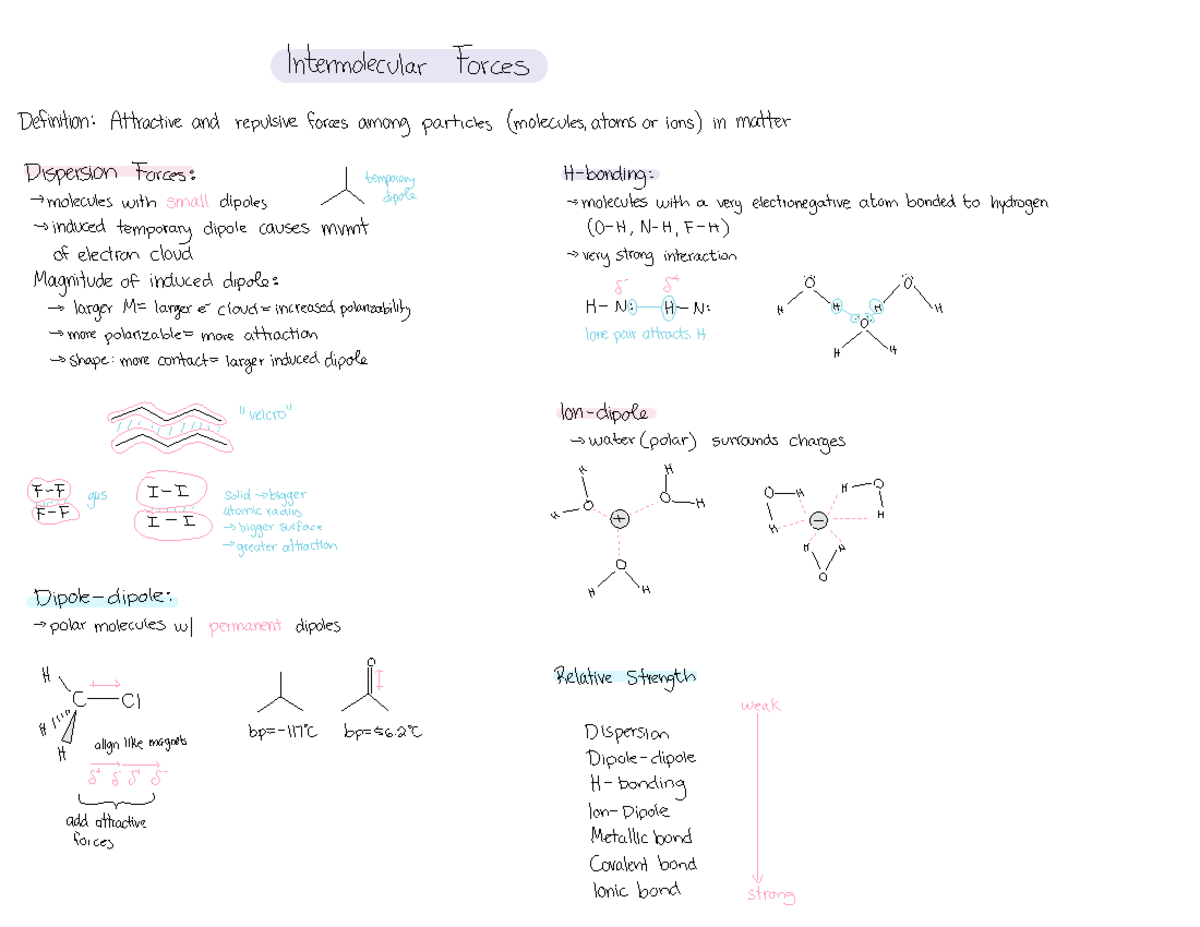 Intermolecular Forces
Definition: Attractive and repulsive forces among particles (molecules, atoms or ions) in matter
Dispersion Forces:
→molecules with small dipoles
→induced temporary dipole causes mvmt
of electron cloud
temporary
dipole
Magnitude of induced dipole:
→ larger M= larger e⁻ cloud= increased polarizability
→more polarizable= more attraction
→shape: more contact= larger induced dipole
"velcro"
F-F
F-F
gas
I-I
I-I
solid →bigger
atomic radius
→bigger surface
→greater attraction
Dipole-dipole:
→polar molecules w/ permanent dipoles
H
C—Cl
H
H
align like magnets
δ⁺ δ⁻ δ⁺ δ⁻
add attractive
forces
bp=-117°C
O
bp=56.2°C
H-bonding:
→molecules with a very electronegative atom bonded to hydrogen
(O-H, N-H, F-H)
→very strong interaction
δ⁻ δ⁺
H-N: H-N:
lone pair attracts H
O O
H H H H
O
H H
Ion-dipole
→water (polar) surrounds charges
H H
H O O H
+
O
H H
O-H H-O
H H
−
H H
O
Relative Strength
weak
Dispersion
Dipole-dipole
H-bonding
Ion-Dipole
Metallic bond
Covalent bond
Ionic bond
strong